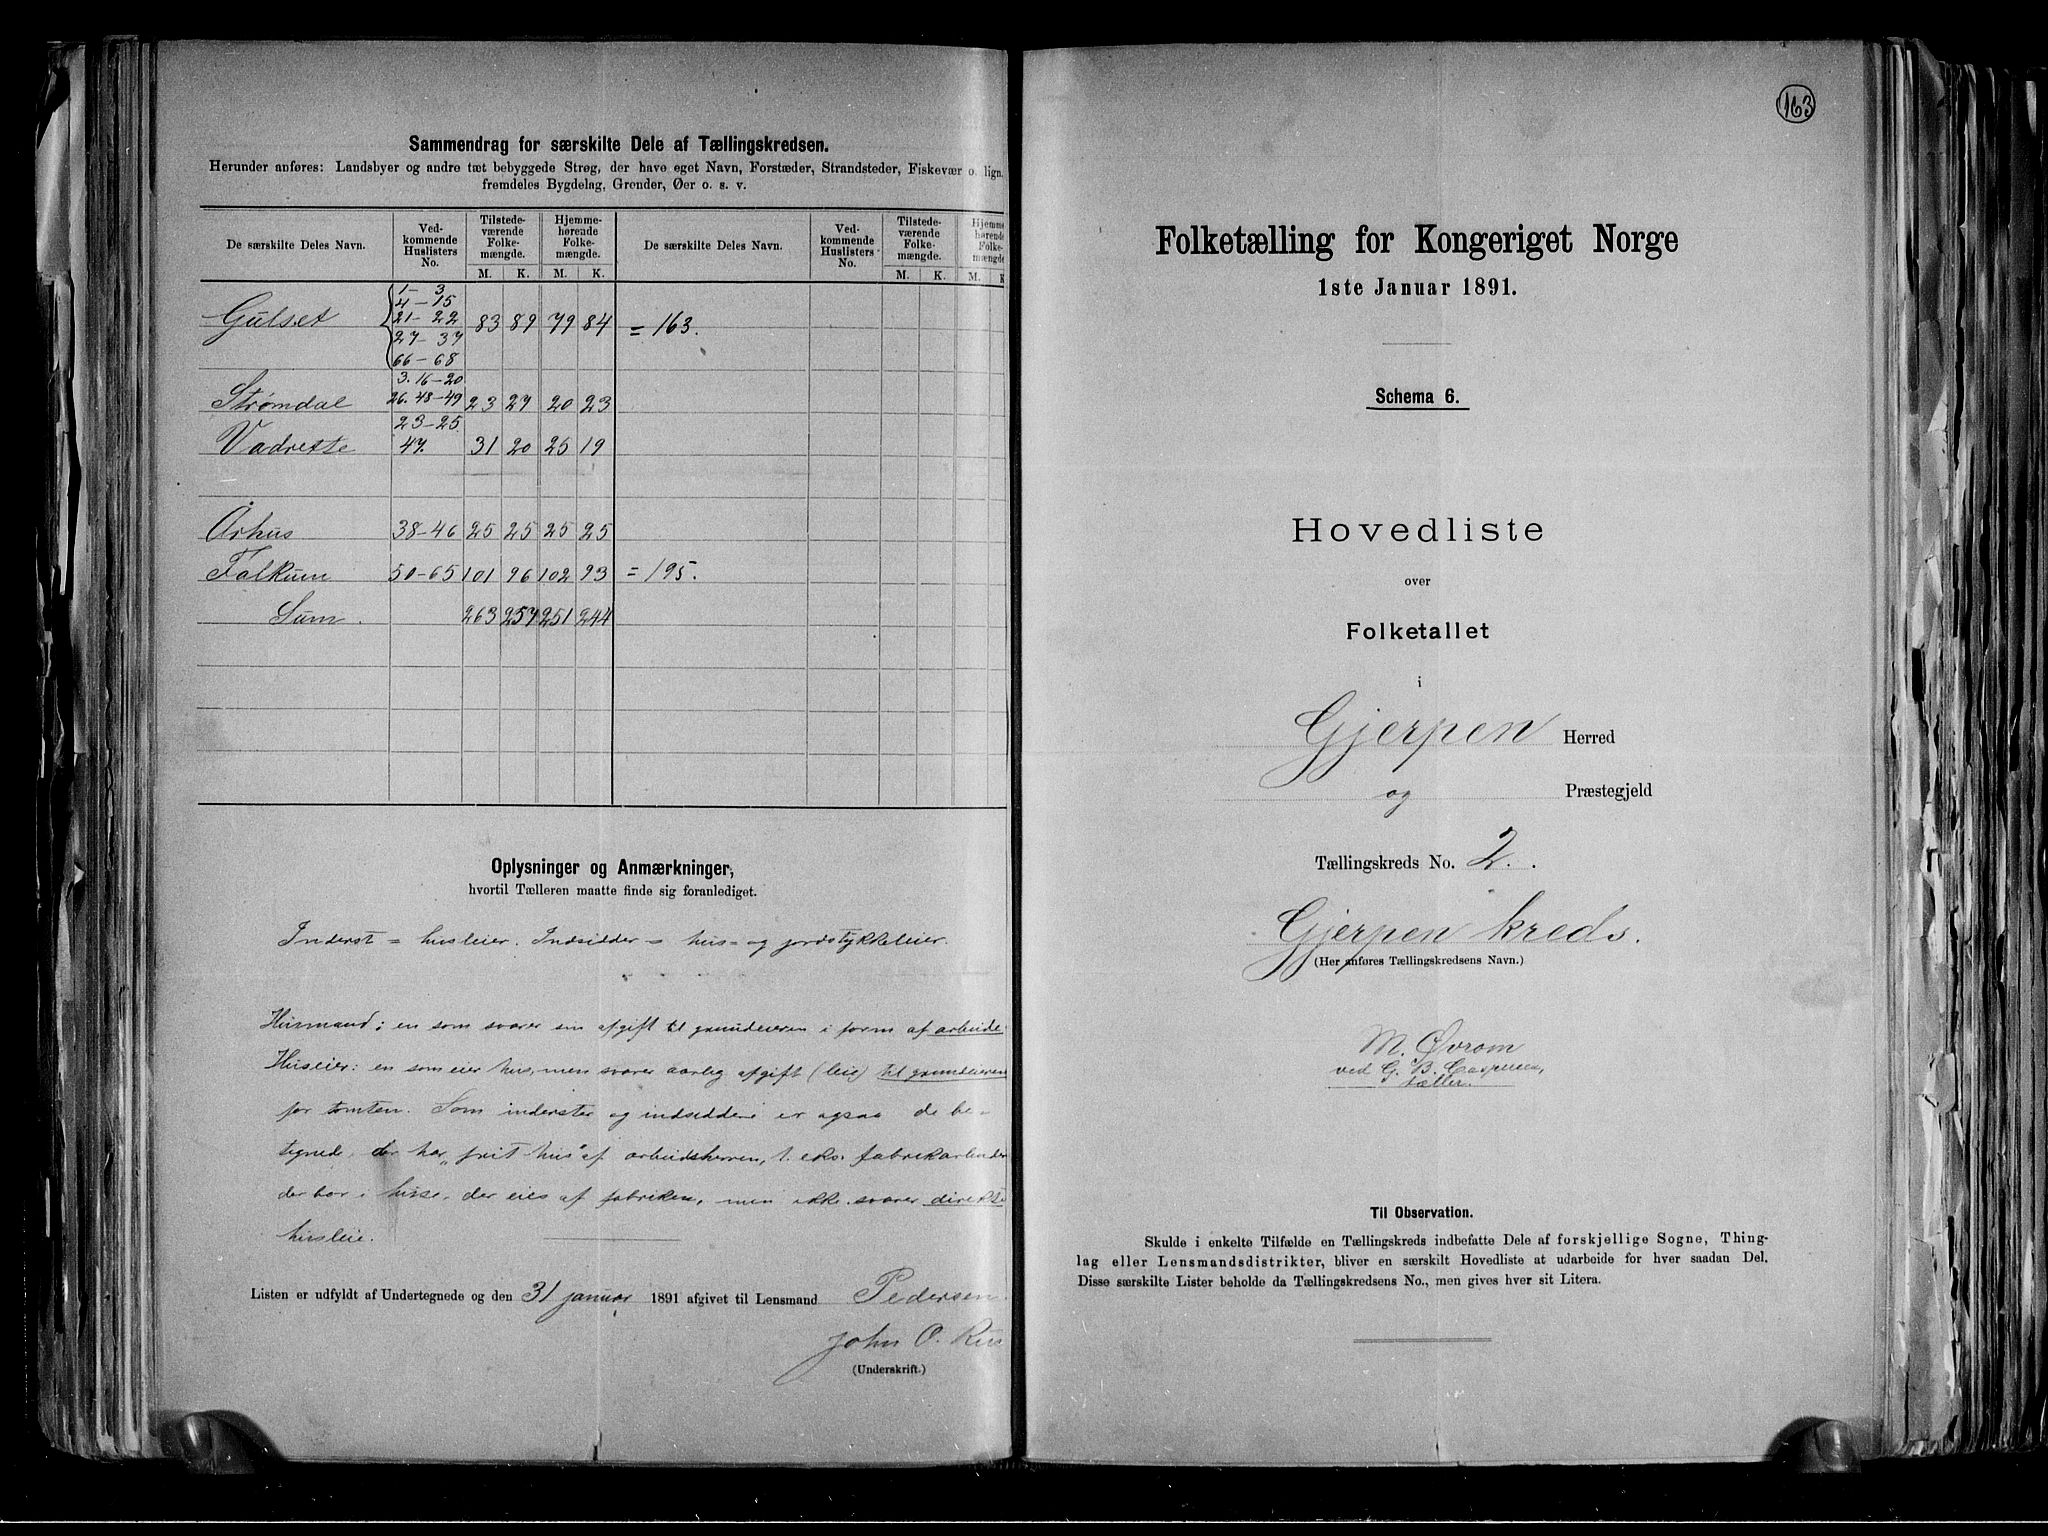 Sammendrag for særskilte Dele af Tællingskredsen.
Herunder anføres: Landsbyer og andre tæt bebyggede Strøg, der have eget Navn, Forstæder, Strandsteder, Fiskevær o. lign.
fremdeles Bygdelag, Grender, Øer o. s. v.
De særskilte Deles Navn. Ved-kommende Huslisters No. Tilstede-værende Folke-mængde. Hjemme-hørende Folke-mængde. De særskilte Deles Navn. Ved-kommende Huslisters No. Tilstede-værende Folke-mængde. Hjemme-hørende Folke-mængde
M. K. M. K. M. K. M. K
Gulset 1-3 4-15 21-22 27-37 66-68 83 89 79 84 = 163.
Strømdal 3. 16-20 26. 48-49 23 27 20 23
Vadrette 23-25 47. 31 20 25 19
Århus 38-46 25 25 25 25
Falkum 50-65 101 96 102 93 = 195.
Sum. 263 257 251 244
Oplysninger og Anmærkninger,
hvortil Tælleren maatte finde sig foranlediget.
Inderst = husleier. Indsidder = hus- og jordstykkeleier.
Husmand; en som svarer sin afgift til grundeieren i form af arbeide.
Huseier: en som eier hus, men svarer aarlig afgift (leie) til grundeieren
for tomten. Som inderster og indsiddere er ogsaa de be-
tegnede, der har "frit hus" af arbeidsherren, t. eks. fabrikarbeider
der bor i huse, der eies af fabriken, men ikke svarer direkte
husleie.
Listen er udfyldt af Undertegnede og den 31 januar 1891 afgivet til Lensmand Pedersen.
John O.
(Underskrift.)
163
Folketælling for Kongeriget Norge
1ste Januar 1891.
Schema 6.
Hovedliste
over
Folketallet
i
Gjerpen Herred
og Præstegjeld
Tællingskreds No. 2.
Gjerpen kreds.
(Her anføres Tællingskredsens Navn.)
M. Øvrom
ved G. B. Caspersen,
tæller.
Til Observation.
Skulde i enkelte Tilfælde en Tællingskreds indbefatte Dele af forskjellige Sogne, Thing-
lag eller Lensmandsdistrikter, bliver en særskilt Hovedliste at udarbeide for hver saadan Del.
Disse særskilte Lister beholde da Tællingskredsens No., men gives hver sit Litera.